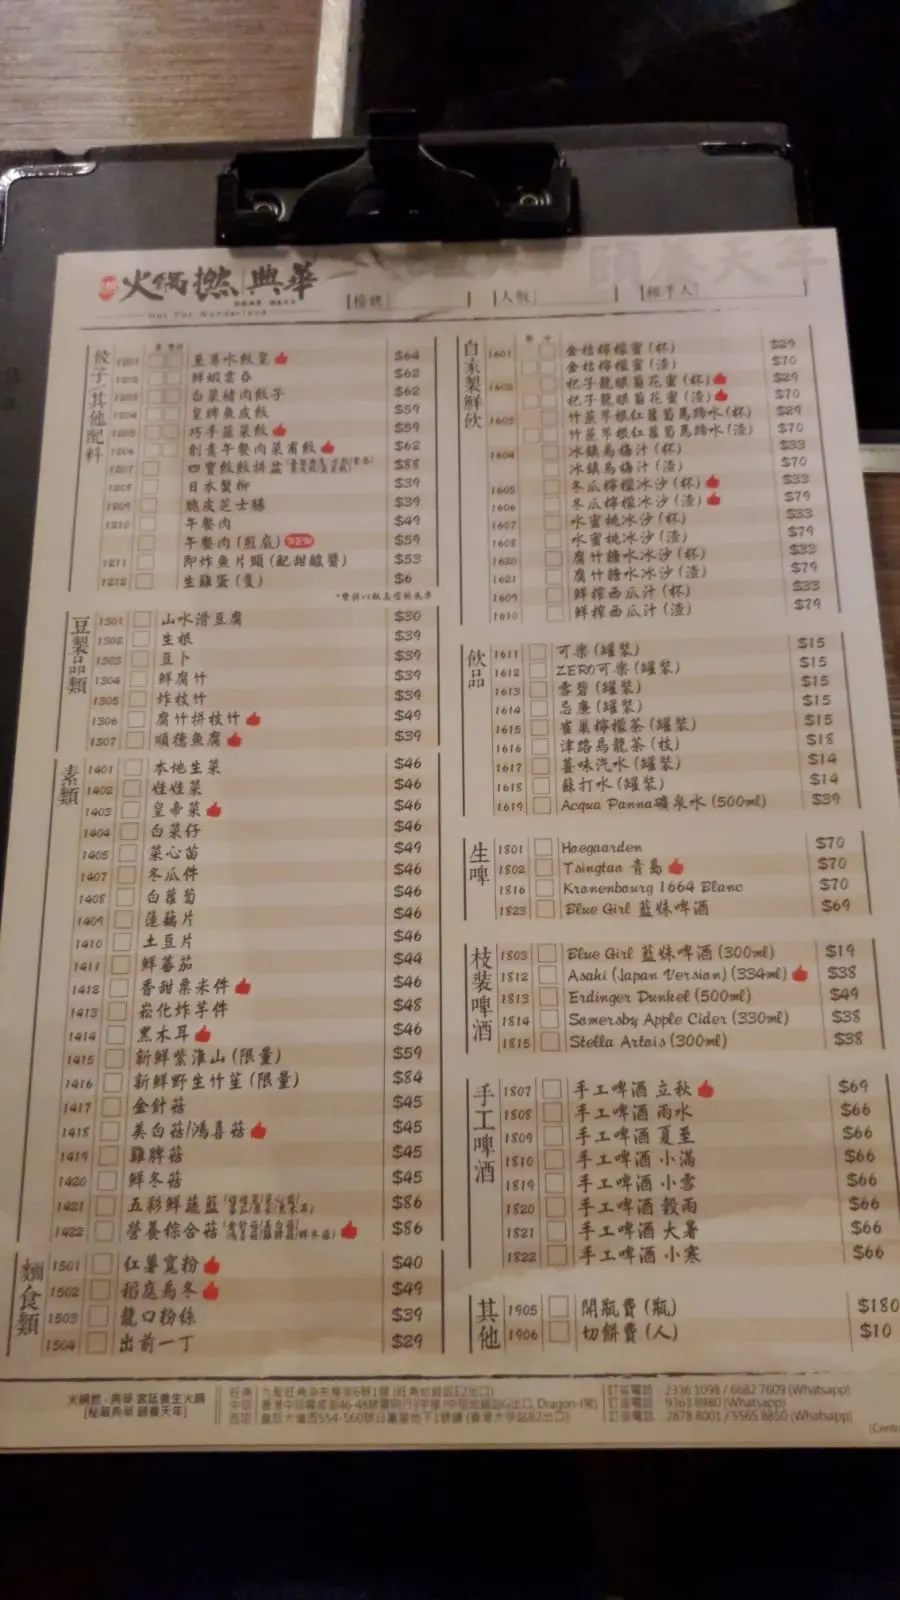 火鍋撚 典華 頤養天年
Hot Pot Wonderland
人數
經手人
餃子/其他配料
1201 至尊水餃皇 $64
1202 鮮蝦雲吞 $62
1203 白菜豬肉餃子 $62
1204 皇牌魚皮餃 $59
1205 巧手韮菜餃 $59
1206 創意午餐肉菜甫餃 $62
1207 四寶餃餃拼盆 $88
1208 日本蟹柳 $39
1209 脆皮芝士腸 $39
1210 午餐肉 $49
午餐肉(煎底) NEW $59
1211 即炸魚片頭(配甜酸醬) $53
1212 生雞蛋(隻) $6
*雙拼以較高價錢為準
豆製品類
1301 山水滑豆腐 $30
1302 生根 $39
1303 豆卜 $39
1304 鮮腐竹 $39
1305 炸枝竹 $39
1306 腐竹拼枝竹 $49
1307 順德魚腐 $39
素類
1401 本地生菜 $46
1402 娃娃菜 $46
1403 皇帝菜 $46
1404 白菜仔 $46
1405 菜心苗 $49
1407 冬瓜件 $46
1408 白蘿蔔 $46
1409 蓮藕片 $46
1410 土豆片 $46
1411 鮮蕃茄 $44
1412 香甜粟米件 $46
1413 崧化炸芋件 $48
1414 黑木耳 $46
1415 新鮮紫淮山(限量) $59
1416 新鮮野生竹笙(限量) $84
1417 金針菇 $45
1418 美白菇/鴻喜菇 $45
1419 雞脾菇 $45
1420 鮮冬菇 $45
1421 五彩鮮蔬籃 $86
1422 營養綜合菇 $86
麵食類
1501 紅薯寬粉 $40
1502 稻庭烏冬 $49
1503 龍口粉絲 $39
1504 出前一丁 $29
自家製鮮飲
1601 金桔檸檬蜜(杯) $29
金桔檸檬蜜(渣) $70
1602 杞子龍眼菊花蜜(杯) $29
杞子龍眼菊花蜜(渣) $70
1603 竹蔗茅根紅蘿蔔馬蹄水(杯) $29
竹蔗茅根紅蘿蔔馬蹄水(渣) $70
1604 冰鎮烏梅汁(杯) $33
冰鎮烏梅汁(渣) $70
1605 冬瓜檸檬冰沙(杯) $33
1606 冬瓜檸檬冰沙(渣) $79
1607 水蜜桃冰沙(杯) $33
1608 水蜜桃冰沙(渣) $79
1620 腐竹糖水冰沙(杯) $33
1621 腐竹糖水冰沙(渣) $79
1609 鮮榨西瓜汁(杯) $33
1610 鮮榨西瓜汁(渣) $79
飲品
1611 可樂(罐裝) $15
1612 ZERO可樂(罐裝) $15
1613 雪碧(罐裝) $15
1614 忌廉(罐裝) $15
1615 雀巢檸檬茶(罐裝) $15
1616 津路烏龍茶(枝) $18
1617 薑味汽水(罐裝) $14
1618 蘇打水(罐裝) $14
1619 Acqua Panna礦泉水(500ml) $39
生啤
1801 Hoegaarden $70
1802 Tsingtao 青島 $70
1816 Kronenbourg 1664 Blanc $70
1823 Blue Girl 藍妹啤酒 $69
枝裝啤酒
1803 Blue Girl 藍妹啤酒(300ml) $19
1812 Asahi (Japan Version) (334ml) $38
1813 Erdinger Dunkel (500ml) $49
1814 Somersby Apple Cider (330ml) $38
1815 Stella Artois (300ml) $38
手工啤酒
1807 手工啤酒 立秋 $69
1808 手工啤酒 雨水 $66
1809 手工啤酒 夏至 $66
1810 手工啤酒 小滿 $66
1819 手工啤酒 小雪 $66
1820 手工啤酒 穀雨 $66
1821 手工啤酒 大暑 $66
1822 手工啤酒 小寒 $66
其他
1905 開瓶費(瓶) $180
1906 切餅費(人) $10
火鍋撚 · 典華 宮廷養生火鍋
[秘藏典華 頤養天年]
訂座電話 2336 1098 / 6682 7609 (Whatsapp)
訂座電話 9363 8980 (Whatsapp)
訂座電話 2878 8001 / 5565 8850 (Whatsapp)